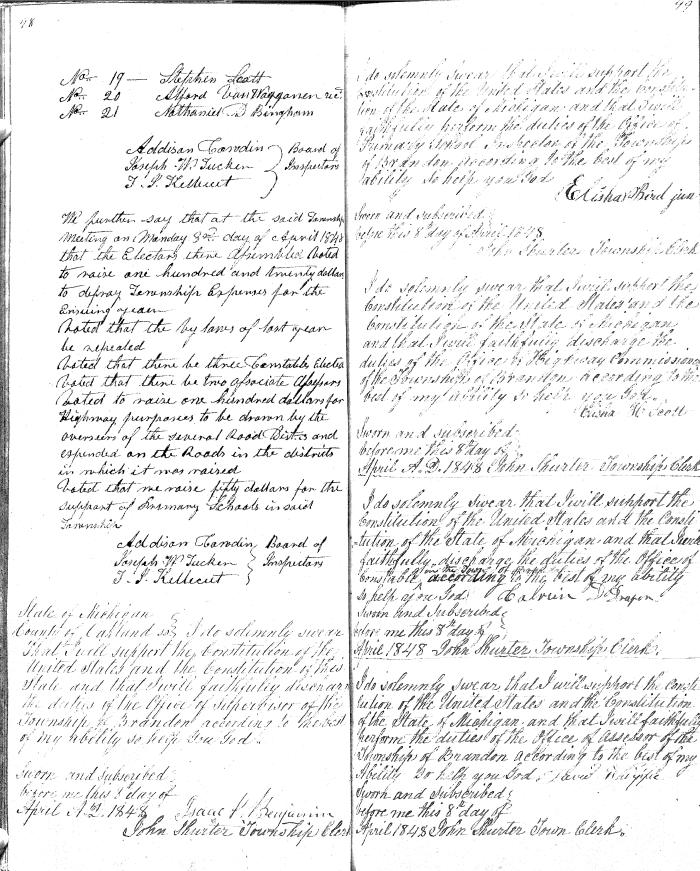 48
No. 19 — Stephen Scott
No. 20 Alford Van Wagganen
No. 21 Nathaniel D Bingham
Addison Cowdin
Joseph W. Tucker
T. S. Kellicut
Board of
Inspectors
We further say that at the said Township
Meeting on Monday 3rd day of April 1848
that the Electors there Assembled Voted
to raise one hundred and twenty dollars
to defray Township Expenses for the
Ensuing year
Voted that the by laws of last year
be repealed
Voted that there be three Constables Elected
Voted that there be two Associate Assessors
Voted to raise one hundred dollars for
Highway purposes to be drawn by the
overseers of the several Road Dists and
expended on the Roads in the districts
in which it was raised
Voted that we raise fifty dollars for the
support of Primary Schools in said
Township
Addison Cowdin
Joseph W. Tucker
T. S. Kellicut
Board of
Inspectors
State of Michigan
County of Oakland ss I do solemnly swear
that I will support the Constitution of the
United States and the Constitution of this
State and that I will faithfully discharge
the duties of the Office of Supervisor of the
Township of Brandon according to the best
of my Ability so help You God.
Sworn and subscribed
before me this day of
April A.D. 1848 Isaac Benjamin
John Shurter Township Clerk
49
I do solemnly swear that I will support the
Constitution of the United States and the Constitu-
tion of the State of Michigan and that I will
faithfully perform the duties of the Office of
Primary School Inspector of the Township
of Brandon according to the best of my
ability So help you God
Elisha Bird jun
Sworn and Subscribed
before this 8th day of April 1848
John Shurter Township Clerk
I do solemnly swear that I will support the
Constitution of the United States and the
Constitution of the State of Michigan
and that I will faithfully discharge the
duties of the Office of Highway Commissioner
of the Township of Brandon according to the
best of my ability so help you God.
W Scott
Sworn and subscribed
before me this 8th day of
April A.D. 1848 John Shurter Township Clerk
I do solemnly swear that I will support the
Constitution of the United States and the Consti
tution of the State of Michigan and that I will
faithfully discharge the duties of the Office of
Constable according to the best of my ability
So help you God Calvin D
Sworn and Subscribed
before me this 8th day of
April 1848 John Shurter Township Clerk.
I do solemnly swear that I will support the consti
tution of the United States and the Constitution
of the State of Michigan, and that I will faithfully
perform the duties of the Office of assessor of the
Township of Brandon according to the best of my
Ability So help you God
Sworn and Subscribed
before me this 8th day of
April 1848 John Shurter Town Clerk.